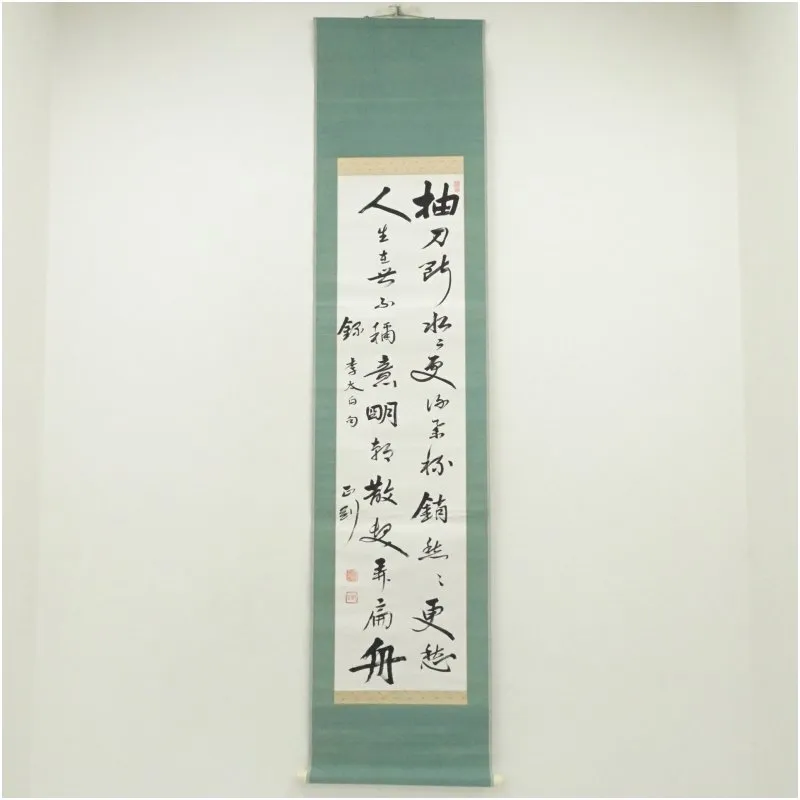 抽刀断水々更流舉杯銷愁々更愁
人生在世不稱意明朝散髮弄扁舟
錄李太白句 正剛